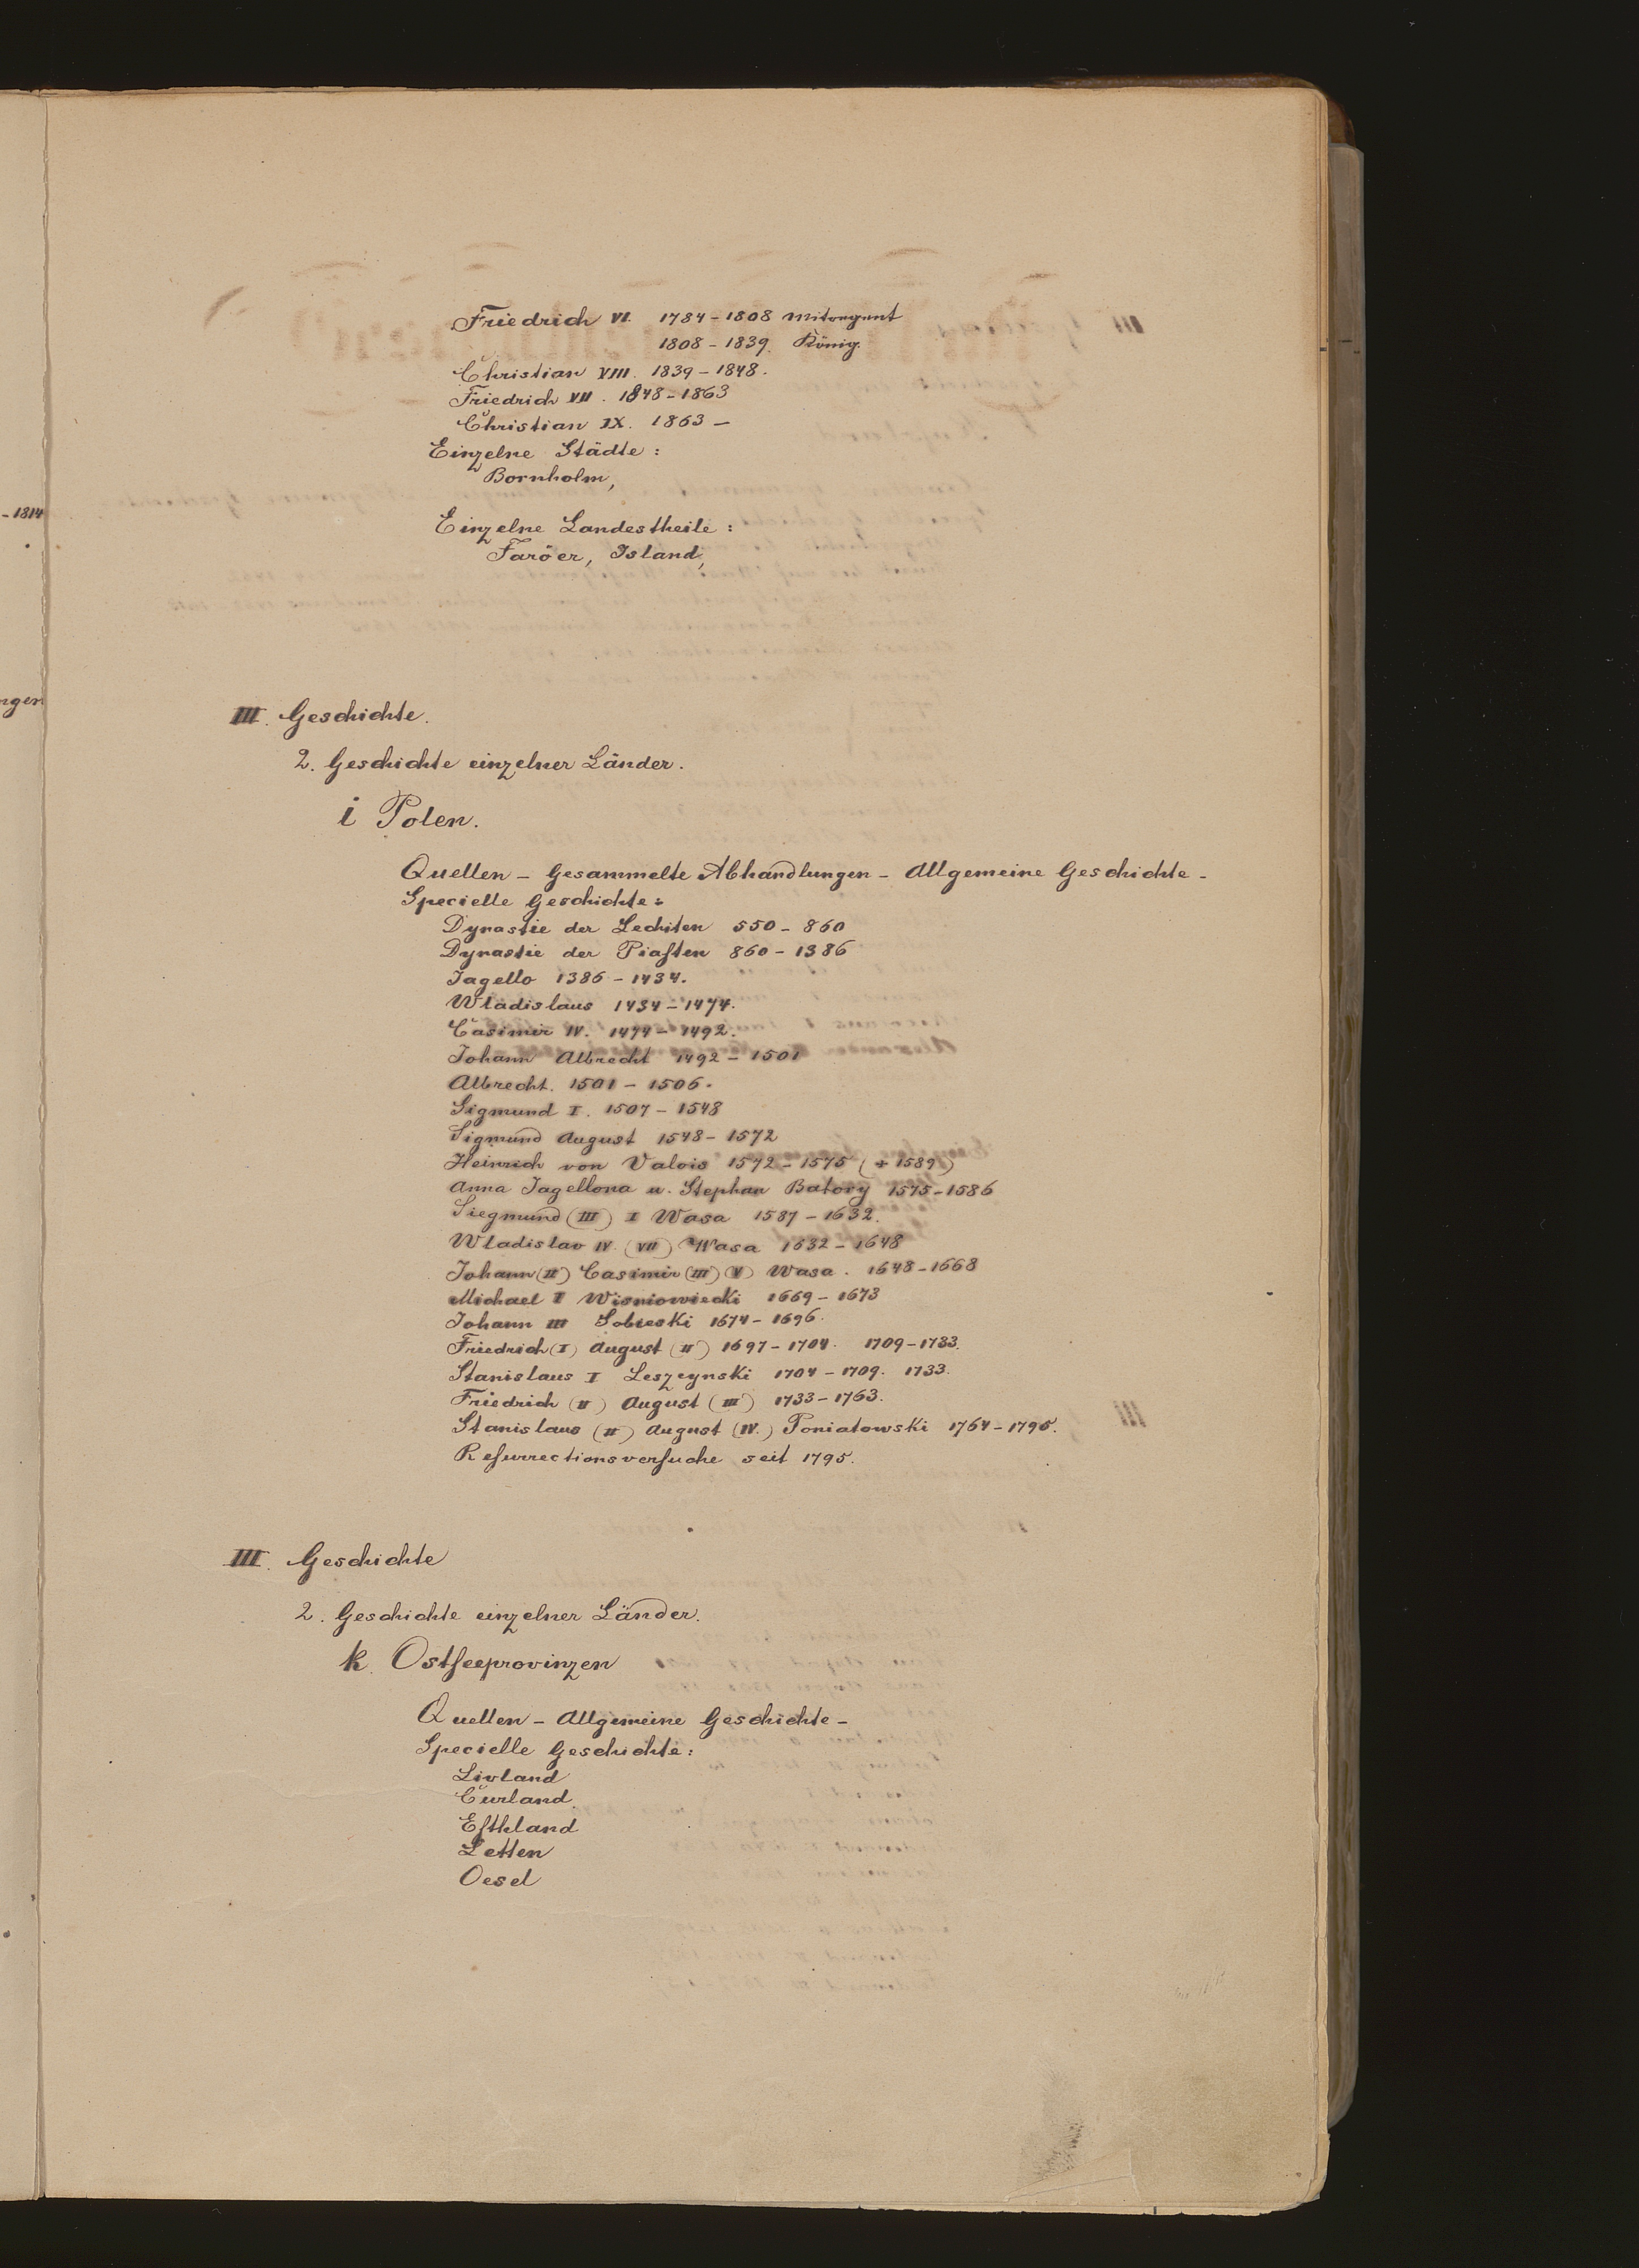 Friedrich VI. 1784 - 1808 Mitregent
1808 - 1839. König.
Christian VIII. 1839 - 1848.
Friedrich VII. 1848 - 1863
Christian IX. 1863 -
Einzelne Städte:
Bornholm,
Einzelne Landestheile:
Faröer, Island,
- 1814
ngen
III. Geschichte.
2. Geschichte einzelner Länder.
i Polen.
Quellen - Gesammelte Abhandlungen - Allgemeine Geschichte -
Specielle Geschichte:
Dynastie der Lechiten 550 - 860
Dynastie der Piaſten 860 - 1386
Jagello 1386 - 1434.
Wladislaus 1434 - 1444.
Casimir IV. 1444 - 1492.
Johann Albrecht 1492 - 1501
Albrecht. 1501 - 1506.
Sigmund I. 1507 - 1548
Sigmund August 1548 - 1572
Heinrich von Valois 1572 - 1575 (+ 1589)
Anna Jagellona u. Stephan Batory 1575 - 1586
Siegmund (III) I Wasa 1587 - 1632.
Wladislav IV. (VII) Wasa 1632 - 1648
Johann (II) Casimir (III) (V) Wasa. 1648 - 1668
Michael I Wisniowiecki 1669 - 1673
Johann III Sobieski 1674 - 1696.
Friedrich (I) August (II) 1697 - 1704. 1709 - 1733.
Stanislaus I Leszcynski 1704 - 1709. 1733.
Friedrich (II) August (III) 1733 - 1763.
Stanislaus (II) August (IV.) Poniatowski 1764 - 1795.
Reſurrectionsverſuche seit 1795.
III. Geschichte
2. Geschichte einzelner Länder.
k. Oſtſeeprovinzen
Quellen - Allgemeine Geschichte -
Specielle Geschichte:
Livland
Curland.
Eſthland
Letten
Oesel